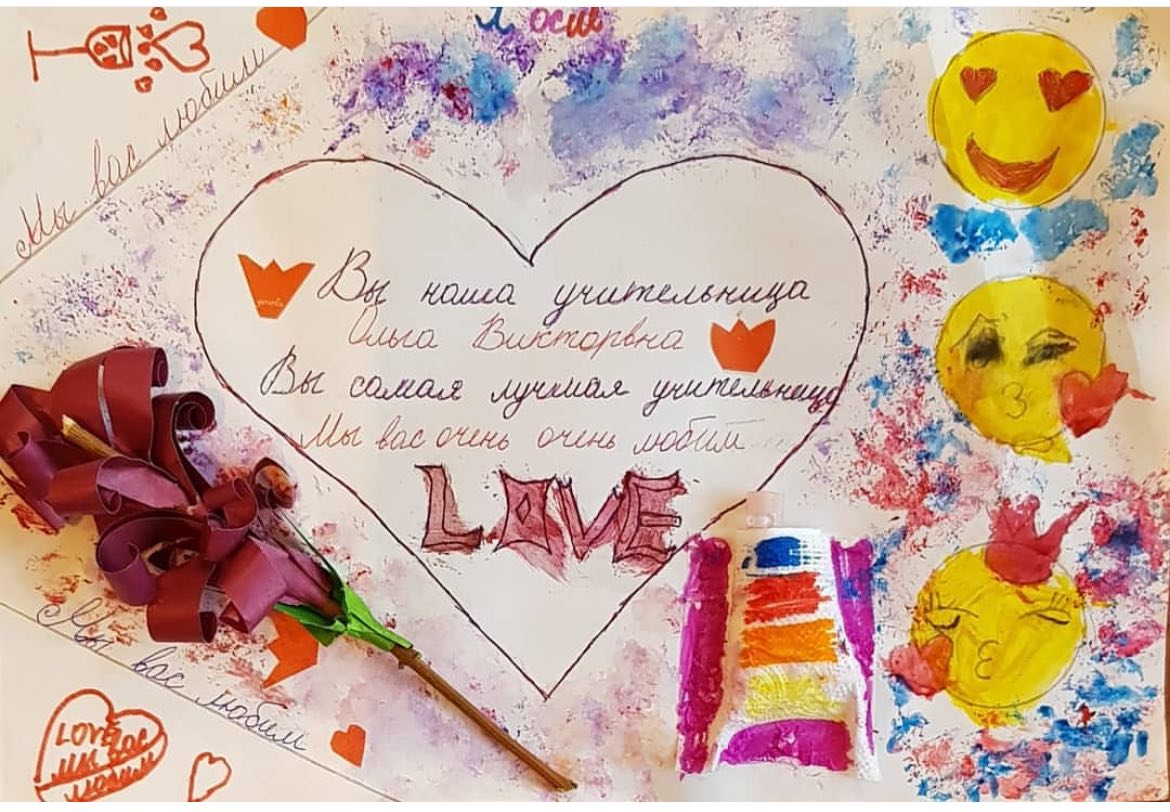 Мы вас любили
Вы наша учительница
Ольга Викторвна
Вы самая лучмая учительница
Мы вас очень очень любим
LOVE
Мы вас любим
LOVE
мы вас
любим